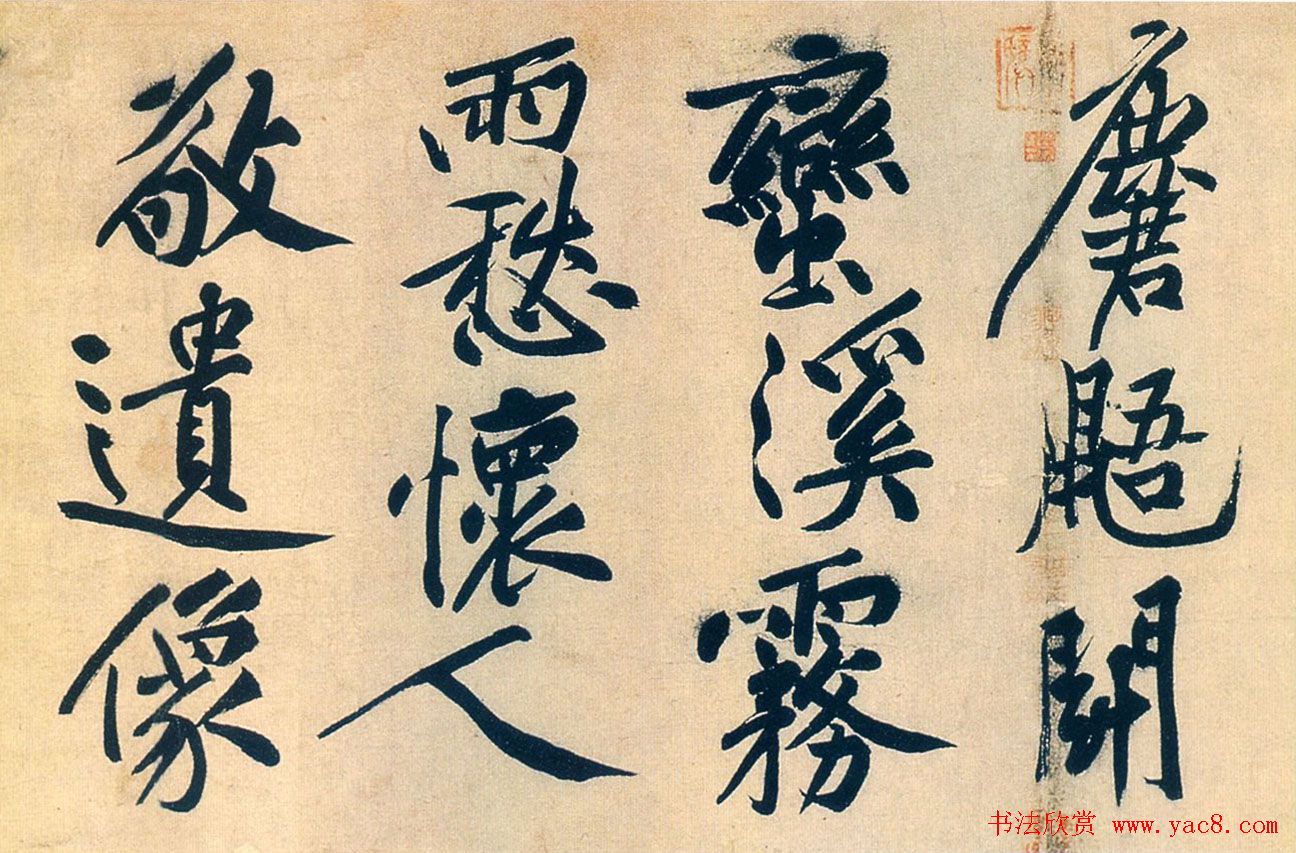 麏鼯閗
蠻溪霧
雨愁懷人
敬遺像
书法欣赏 www.yac8.com